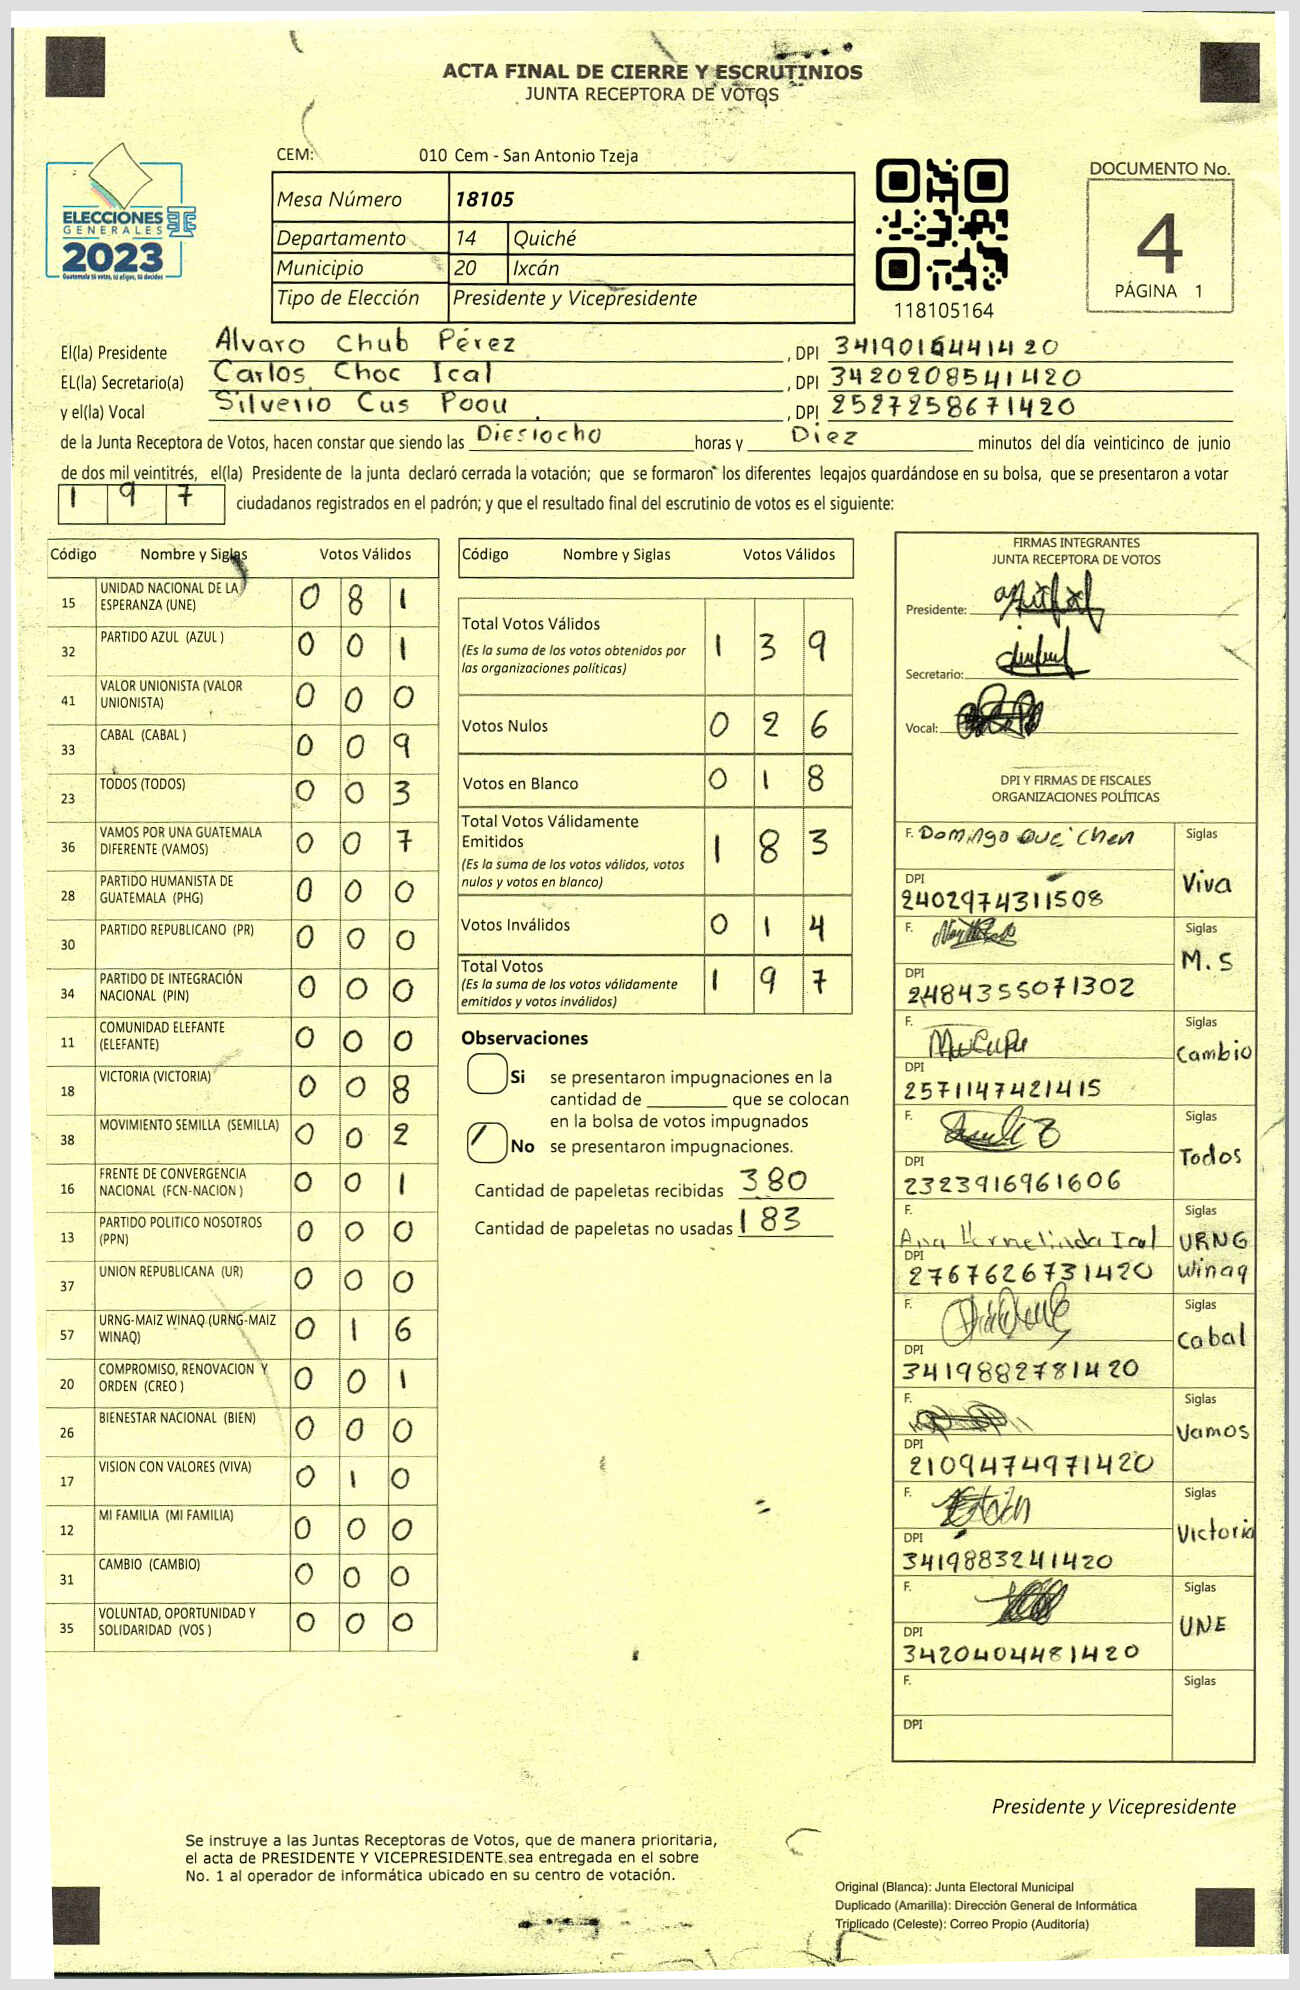 ACTA FINAL DE CIERRE Y ESCRUTINIOS
JUNTA RECEPTORA DE VOTOS
ELECCIONES
GENERALES
2023
Guatemala tú votas, tú eliges, tú decides
CEM: 010 Cem - San Antonio Tzeja
Mesa Número 18105
Departamento 14 Quiché
Municipio 20 Ixcán
Tipo de Elección Presidente y Vicepresidente
118105164
DOCUMENTO No.
4
PÁGINA 1
El(la) Presidente Alvaro Chub Pérez , DPI 3419016441420
EL(la) Secretario(a) Carlos Choc Ical , DPI 3420208541420
y el(la) Vocal Silverio Cus Poou , DPI 2527258671420
de la Junta Receptora de Votos, hacen constar que siendo las Diesiocho horas y Diez minutos del día veinticinco de junio
de dos mil veintitrés, el(la) Presidente de la junta declaró cerrada la votación; que se formaron los diferentes legajos guardándose en su bolsa, que se presentaron a votar
197 ciudadanos registrados en el padrón; y que el resultado final del escrutinio de votos es el siguiente:
Código Nombre y Siglas Votos Válidos
15 UNIDAD NACIONAL DE LA ESPERANZA (UNE) 0 8 1
32 PARTIDO AZUL (AZUL ) 0 0 1
41 VALOR UNIONISTA (VALOR UNIONISTA) 0 0 0
33 CABAL (CABAL ) 0 0 9
23 TODOS (TODOS) 0 0 3
36 VAMOS POR UNA GUATEMALA DIFERENTE (VAMOS) 0 0 7
28 PARTIDO HUMANISTA DE GUATEMALA (PHG) 0 0 0
30 PARTIDO REPUBLICANO (PR) 0 0 0
34 PARTIDO DE INTEGRACIÓN NACIONAL (PIN) 0 0 0
11 COMUNIDAD ELEFANTE (ELEFANTE) 0 0 0
18 VICTORIA (VICTORIA) 0 0 8
38 MOVIMIENTO SEMILLA (SEMILLA) 0 0 2
16 FRENTE DE CONVERGENCIA NACIONAL (FCN-NACION ) 0 0 1
13 PARTIDO POLITICO NOSOTROS (PPN) 0 0 0
37 UNION REPUBLICANA (UR) 0 0 0
57 URNG-MAIZ WINAQ (URNG-MAIZ WINAQ) 0 1 6
20 COMPROMISO, RENOVACION Y ORDEN (CREO ) 0 0 1
26 BIENESTAR NACIONAL (BIEN) 0 0 0
17 VISION CON VALORES (VIVA) 0 1 0
12 MI FAMILIA (MI FAMILIA) 0 0 0
31 CAMBIO (CAMBIO) 0 0 0
35 VOLUNTAD, OPORTUNIDAD Y SOLIDARIDAD (VOS ) 0 0 0
Código Nombre y Siglas Votos Válidos
Total Votos Válidos 1 3 9
(Es la suma de los votos obtenidos por
las organizaciones políticas)
Votos Nulos 0 2 6
Votos en Blanco 0 1 8
Total Votos Válidamente
Emitidos 1 8 3
(Es la suma de los votos válidos, votos
nulos y votos en blanco)
Votos Inválidos 0 1 4
Total Votos 1 9 7
(Es la suma de los votos válidamente
emitidos y votos inválidos)
Observaciones
Si se presentaron impugnaciones en la
cantidad de ________ que se colocan
en la bolsa de votos impugnados
No se presentaron impugnaciones.
Cantidad de papeletas recibidas 380
Cantidad de papeletas no usadas 183
FIRMAS INTEGRANTES
JUNTA RECEPTORA DE VOTOS
Presidente:
Secretario:
Vocal:
DPI Y FIRMAS DE FISCALES
ORGANIZACIONES POLÍTICAS
F. Domingo Que Chen Siglas
DPI Viva
2402974311508
F. Siglas
DPI M.S
2484355071302
F. Siglas
DPI Cambio
2571147421415
F. Siglas
DPI Todos
2323916961606
F. Siglas
Ana Ical URNG
DPI Winaq
2767626731420
F. Siglas
DPI Cabal
3419882781420
F. Siglas
DPI Vamos
2109474971420
F. Siglas
DPI Victoria
3419883241420
F. Siglas
DPI UNE
3420404481420
F. Siglas
DPI
Presidente y Vicepresidente
Se instruye a las Juntas Receptoras de Votos, que de manera prioritaria,
el acta de PRESIDENTE Y VICEPRESIDENTE sea entregada en el sobre
No. 1 al operador de informática ubicado en su centro de votación.
Original (Blanca): Junta Electoral Municipal
Duplicado (Amarilla): Dirección General de Informática
Triplicado (Celeste): Correo Propio (Auditoría)